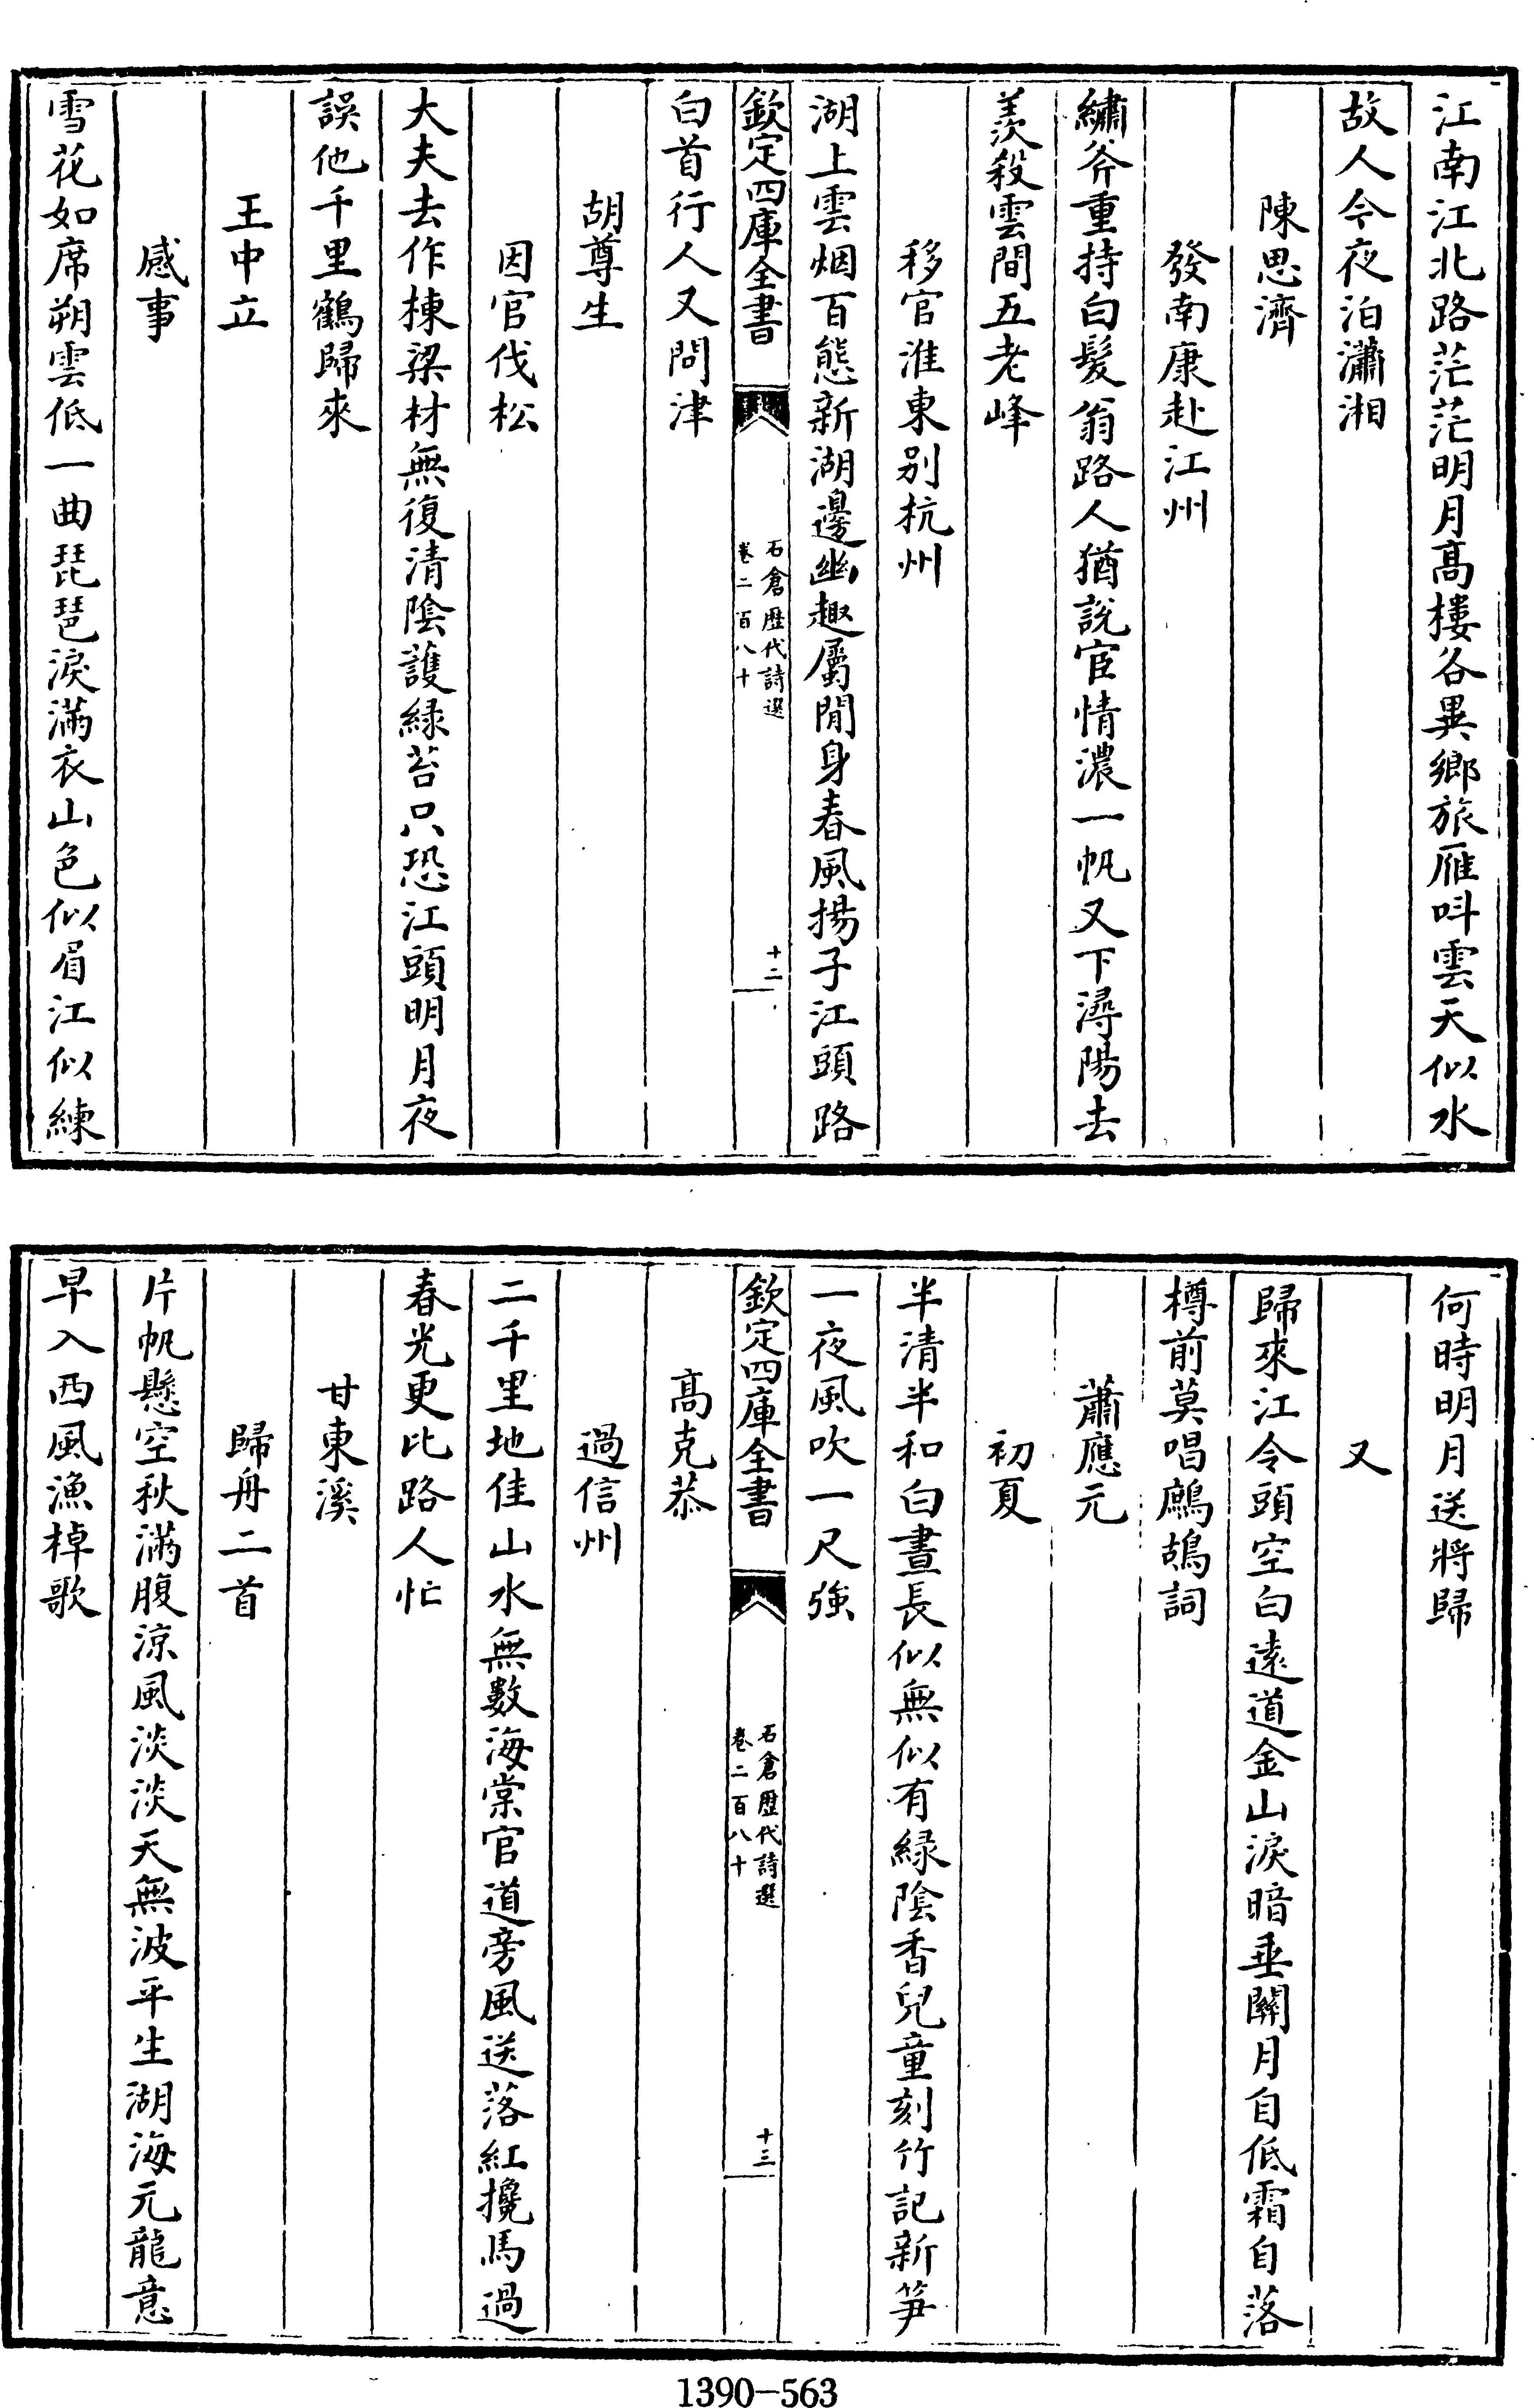 江南江北路茫茫明月高樓各異鄉旅雁呌雲天似水
故人今夜泊瀟湘
陳思濟
發南康赴江州
繡斧重持白髪翁路人猶說宦情濃一帆又下潯陽去
羨殺雲間五老峰
移官淮東别杭州
湖上雲烟百態新湖邊幽趣屬閒身春風揚子江頭路
欽定四庫全書
石倉歷代詩選
卷二百八十
十二
白首行人又問津
胡尊生
因官伐松
大夫去作棟梁材無復清陰護緑苔只恐江頭明月夜
誤他千里鶴歸來
王中立
感事
雪花如席朔雲低一曲琵琶淚滿衣山色似眉江似練
何時明月送將歸
又
歸來江令頭空白遠道金山淚暗垂關月自低霜自落
樽前莫唱鷓鴣詞
蕭應元
初夏
半清半和白晝長似無似有緑陰香兒童刻竹記新笋
一夜風吹一尺強
欽定四庫全書
石倉歷代詩選
卷二百八十
十三
高克恭
過信州
二千里地佳山水無數海棠官道旁風送落紅攙馬過
春光更比路人忙
甘東溪
歸舟二首
片帆懸空秋滿腹涼風淡淡天無波平生湖海元龍意
早入西風漁棹歌
1390-563